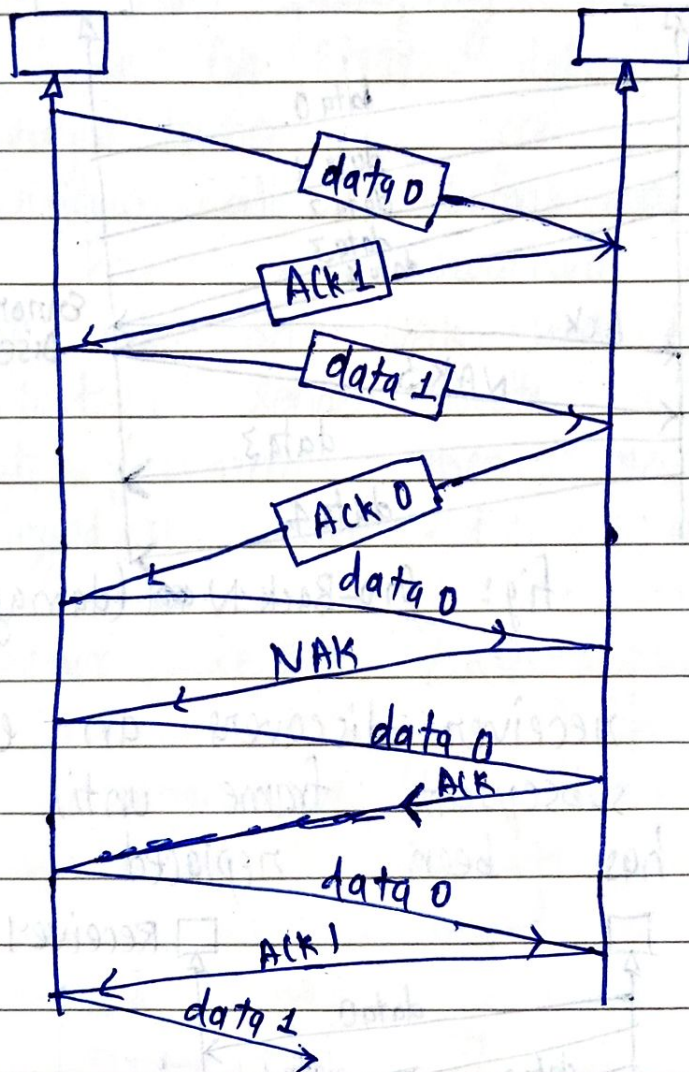 data 0
ACK 1
data 1
ACK 0
data 0
NAK
data 0
ACK
data 0
ACK 1
data 1